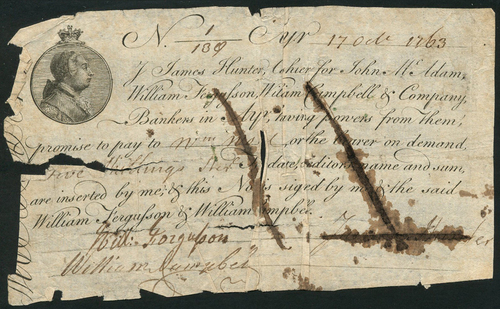 N. 1/138 Ayr 17 Octr 1763
I James Hunter, Cashier for John McAdam,
William Fergusson, William Campbell & Company,
Bankers in Ayr, having powers from them,
promise to pay to Wm or the Bearer on demand,
Five Shillings Ster date, editors name and sum,
are inserted by me; & this Note is signed by me & the said
William Fergusson & William Campbel.
Will: Fergusson
William Campbell